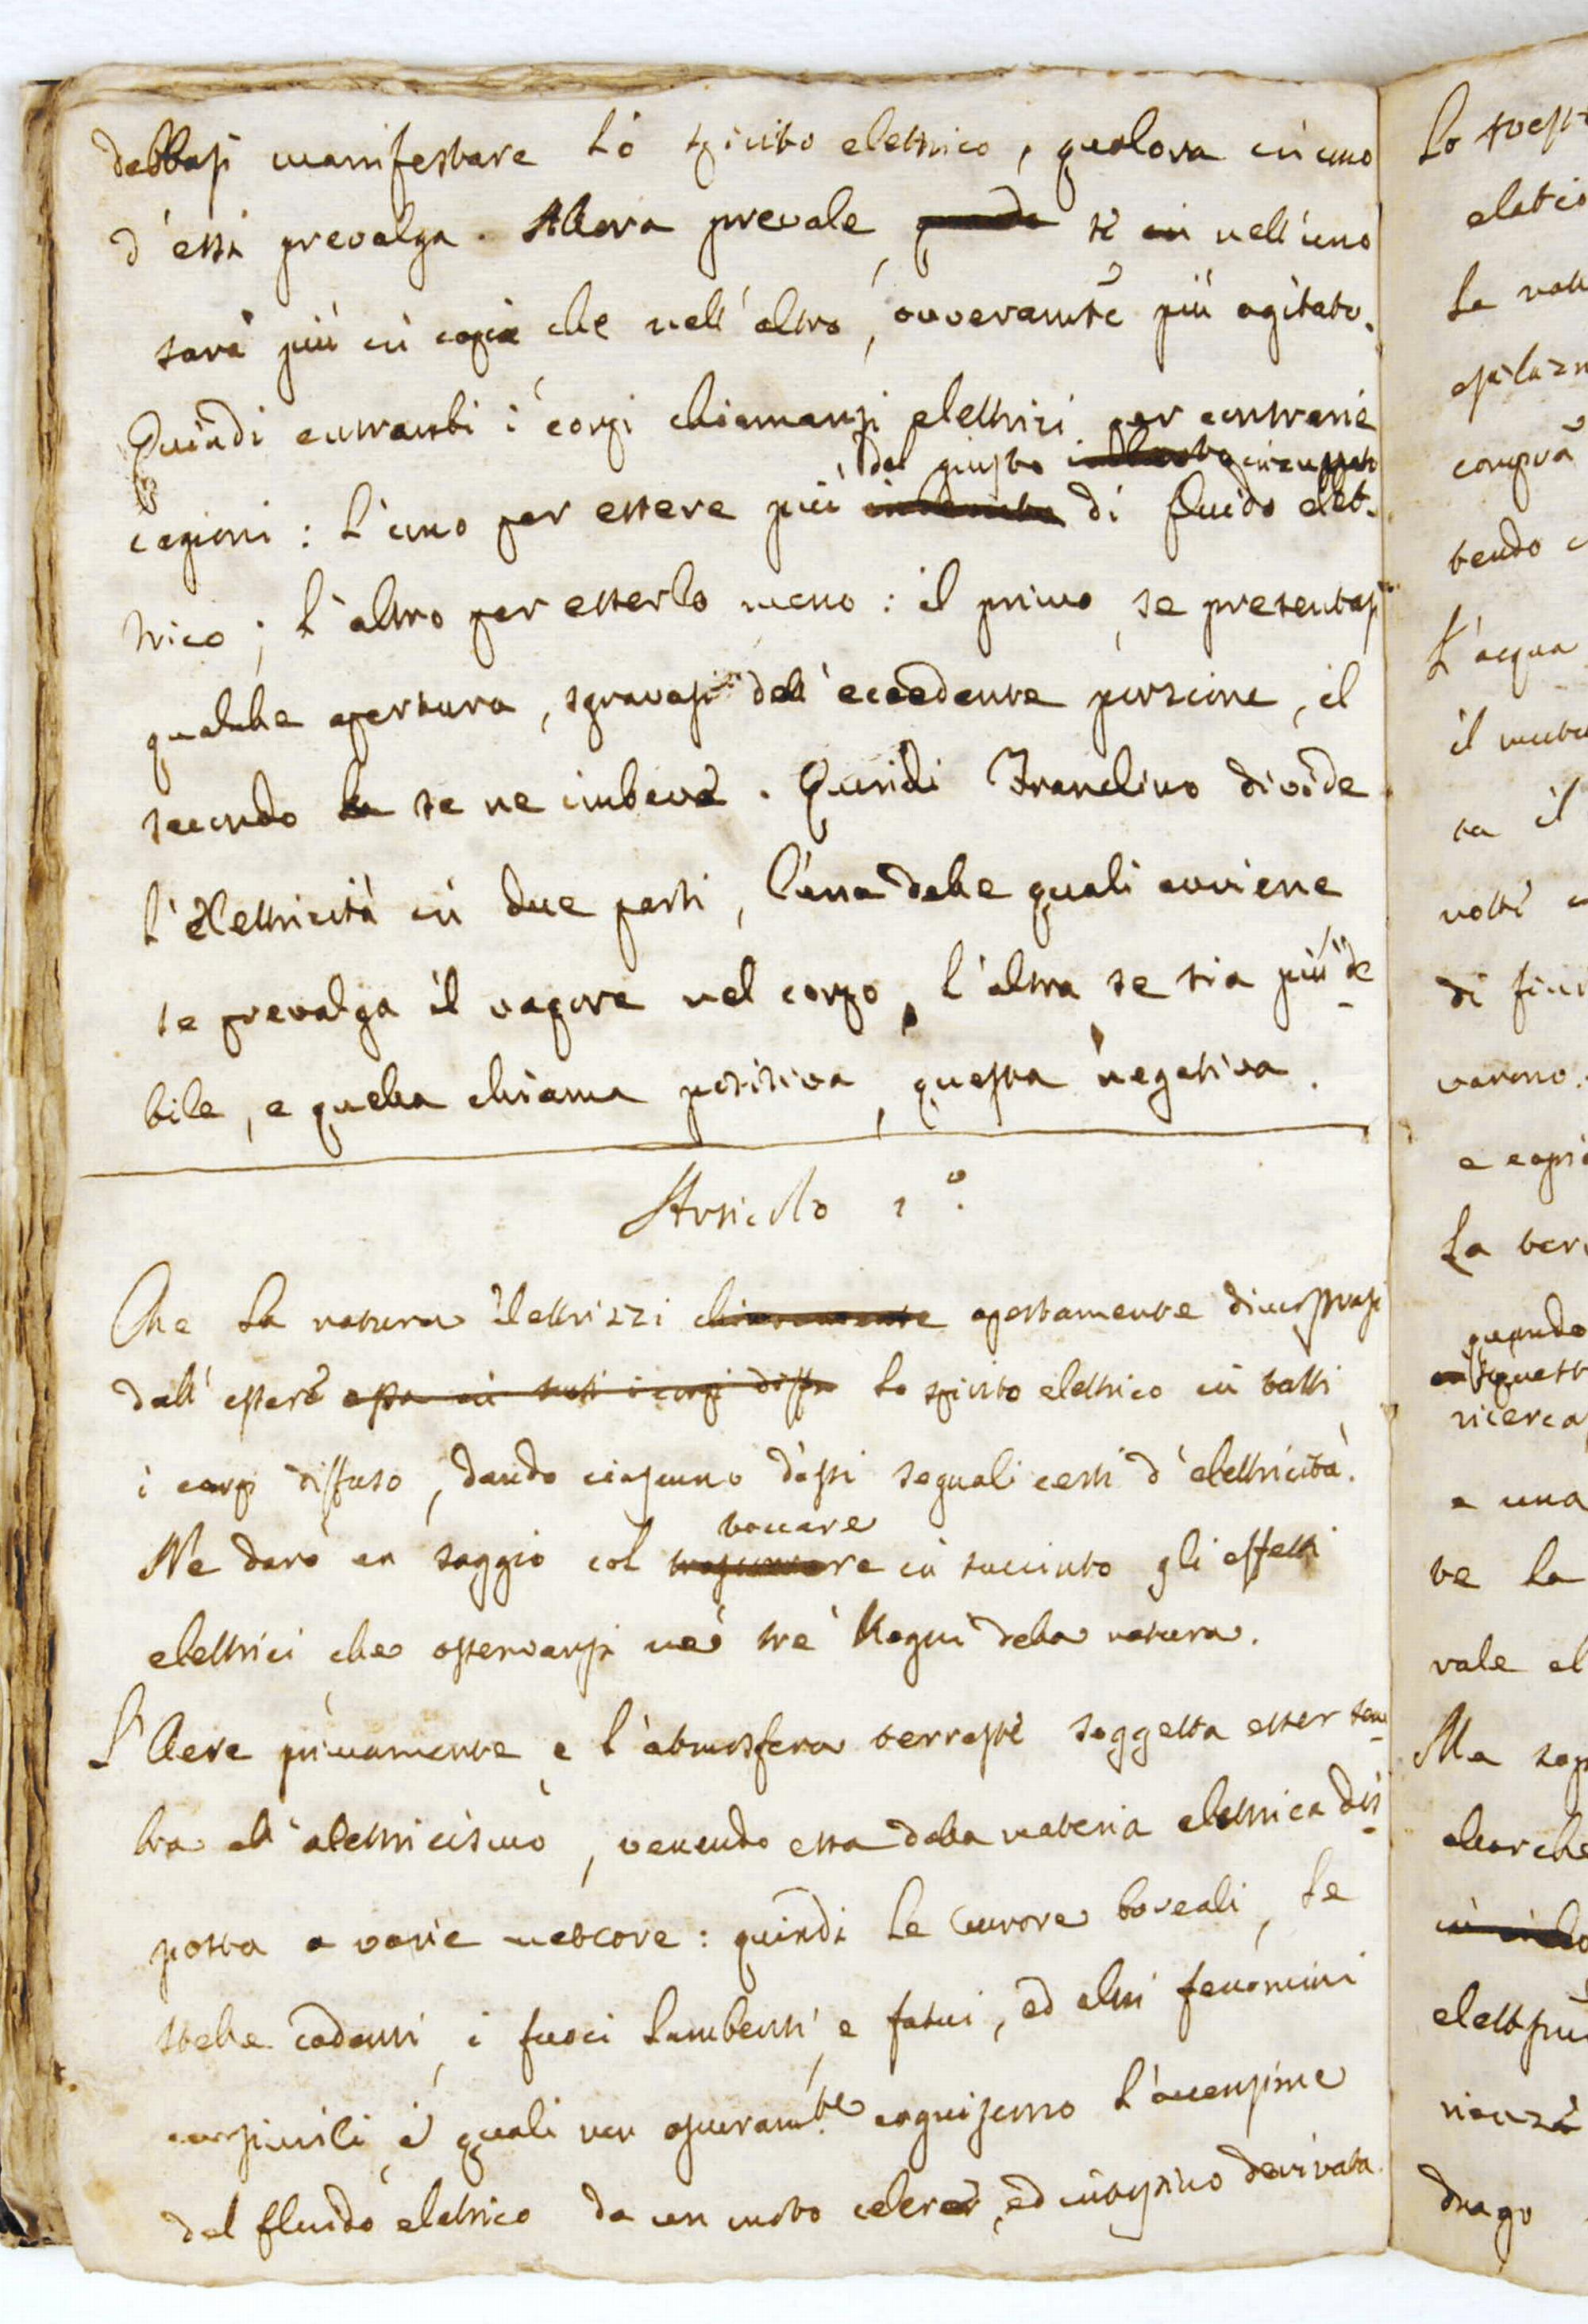 debbasi manifestare lo spirito elettrico, qualora in uno
d'essi prevalga. Allora prevale, quando se in nell'uno
sarà più in copia che nell'altro, ovveramte più agitato.
Quindi entrambi i corpi chiamansi elettrici per contrarie
del giusto inzuppato
cagioni: l'uno per essere più di fluido elet-
trico; l'altro per esserlo meno: il primo, se presentasi
qualche apertura, sgravasi dell'eccedente porzione, il
secondo se ne imbeve. Quindi Franclino divide
l'Elettricità in due parti, l'una delle quali avviene
se prevalga il vapore nel corpo, l'altra se sia più de
bile, e quella chiama positiva, questa negativa.
Articolo 1°.
Che la natura elettrizzi chiaramente apertamente
dall'essere essa in tutti i corpi diffu lo spirito elettrico in tutti
i corpi diffuso, dando ciascuno d'essi segnali certi d'elettricità.
toccare
Ne darò un saggio col in succinto gli effetti
elettrici che osservansi ne' tre Regni della natura.
L'Aere primamente e l'atmosfera terreste soggetta esser sem-
bra all'elettricismo, venendo essa dalla materia elettrica dis-
posta a varie meteore: quindi le Aurore boreali, le
stelle cadenti, i fuoci lambenti, e fatui, ed altri fenomini
consimili, i quali non oscuramte. cagniscono l'accensione
del fluido elettrico da un moto celere, ed intestino derivata.
Lo
elatio
Le
compra
tendo
L'acqua
il
ta il
volte
di
varono.
e
La
quando
ricerca
e una
te la
vale al
Ma
allorche
drago